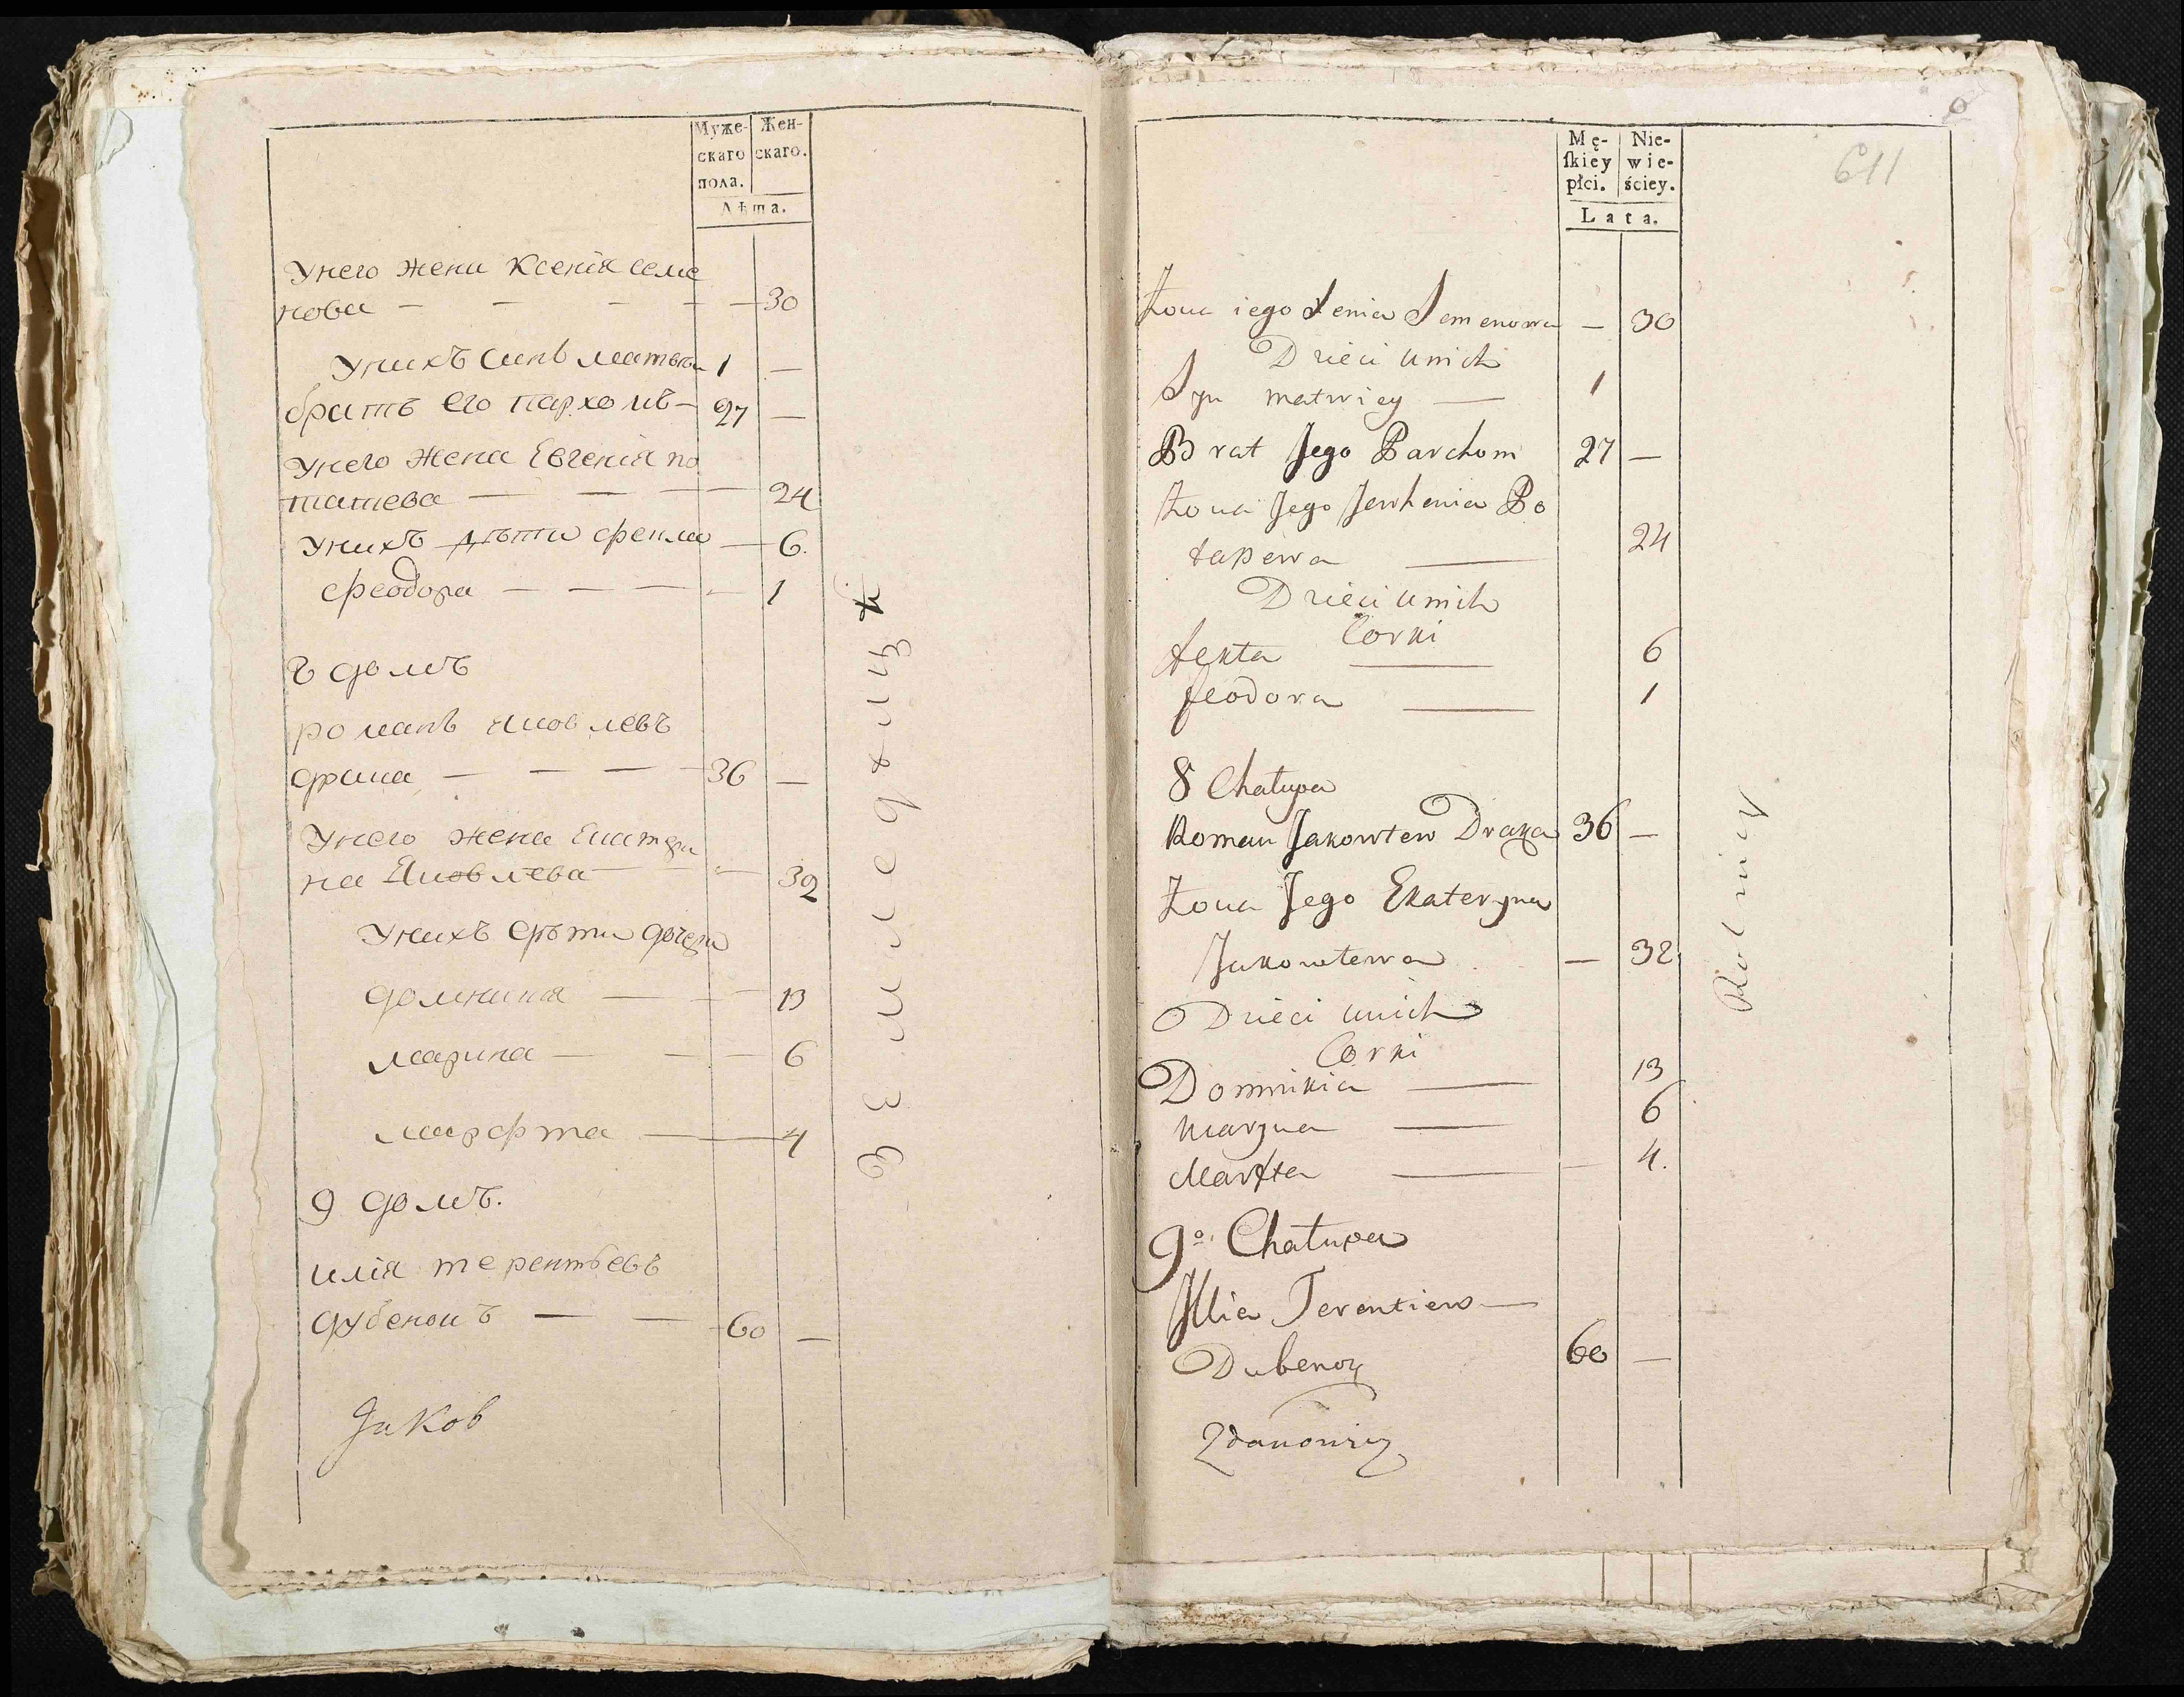 Муже-
скаго
пола.
Жен-
скаго.
Лѣта.
Унего жена Ксенія семе
нова — — — — — 30
Унихъ синъ матвѣи 1 —
братъ его пархомъ — 27 —
Унего жена Евгенія по
тапева — — — — 24
Унихъ дѣти фекла — 6.
феодора — — — — 1
8 домъ
романъ яковлевъ
драка — — — — 36 —
Унего жена Екатери
на Яковлева — — — 32
Унихъ дѣти дочери
домникія — — — 13
марина — — — 6
марфта — — 4
9 домъ.
илія терентьевъ
дубенокъ — — 60 —
Jaков
Земледѣлцѣ
Mę-
skiey
płci.
Nie-
wie-
ściey.
Lata.
611
Żona iego Xenia Semenowa — 30
Dzieci unich
Syn matwiey — 1
Brat Jego Parchom 27 —
Żona Jego Jewhenia Po
tapewa — 24
Dzieci unich
Corki
fekła — 6
feodora — 1
8 Chałupa
Roman Jakowlew Draka 36 —
Żona Jego Ekateryna
Jakowlewa — 32
Dzieci unich
Corki
Domnikia — 13
Maryna — 6
Marfta — 4.
9º Chałupa
Jllia Terentiew —
Dubenoy 60 —
Zdanowicz
Rolnicy